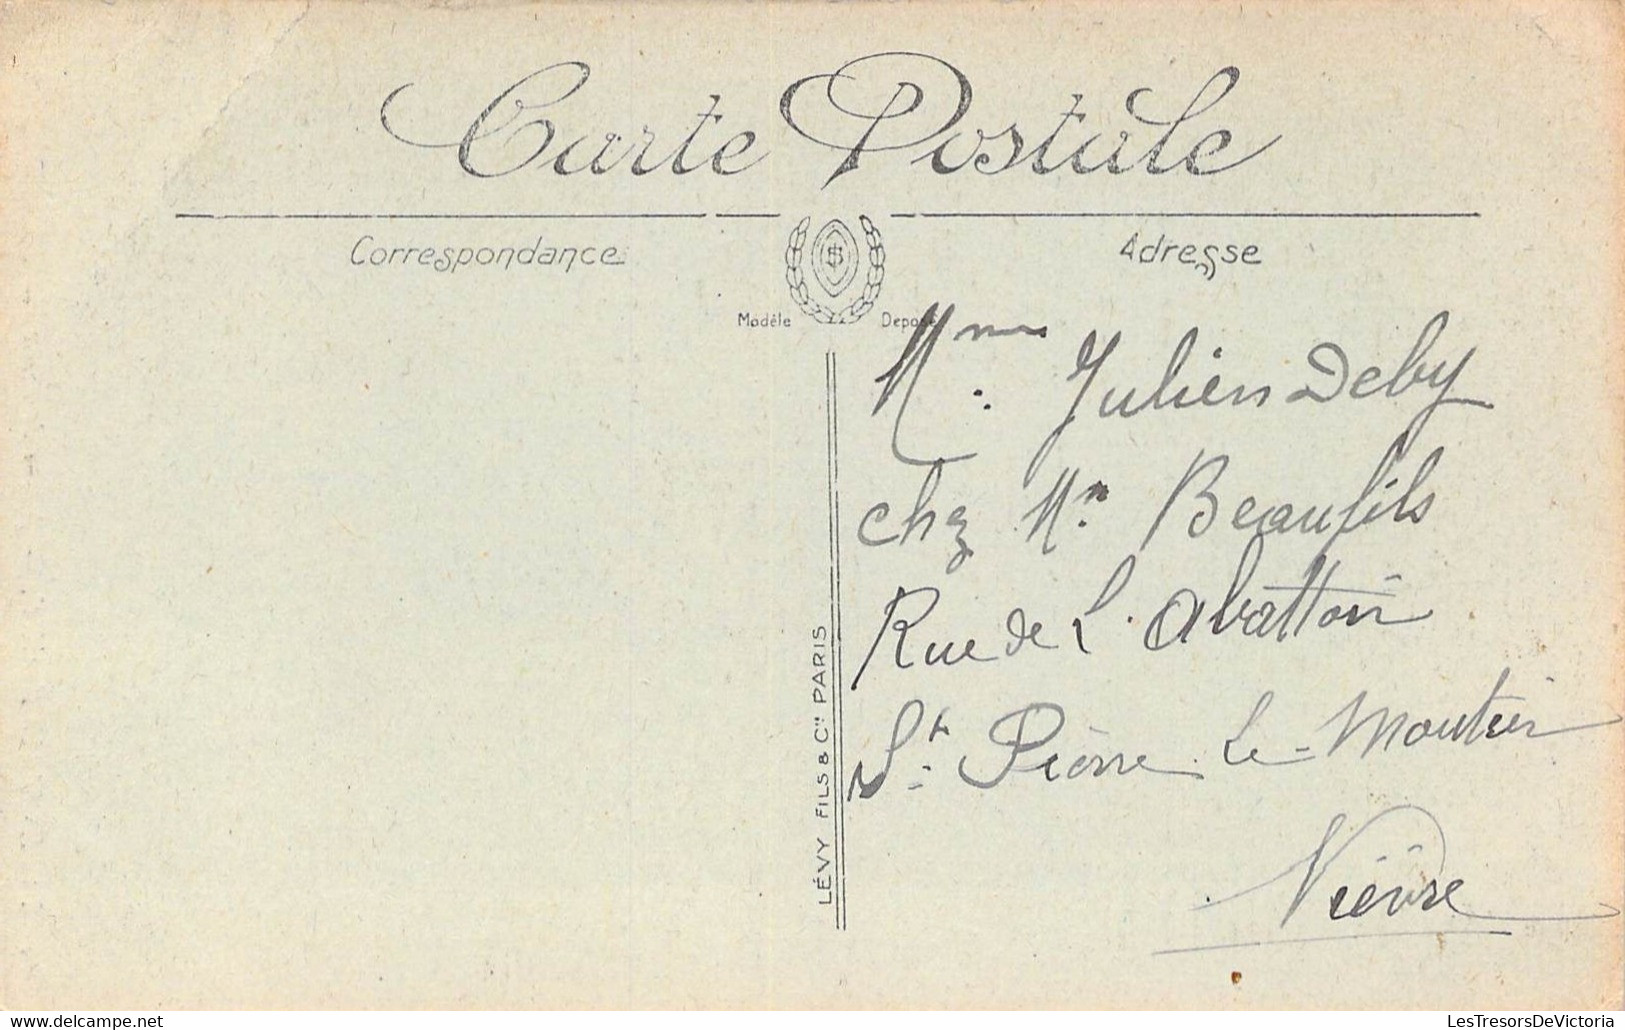 Carte Postale
Correspondance
Adresse
Modèle Deposé
Mme. Julien Deby
chez Mr. Beaufils
Rue de L'Abattoir
St. Pierre Le-Moutier
Nièvre
LÉVY FILS & Cie PARIS
delcampe.net
LesTresorsDeVictoria